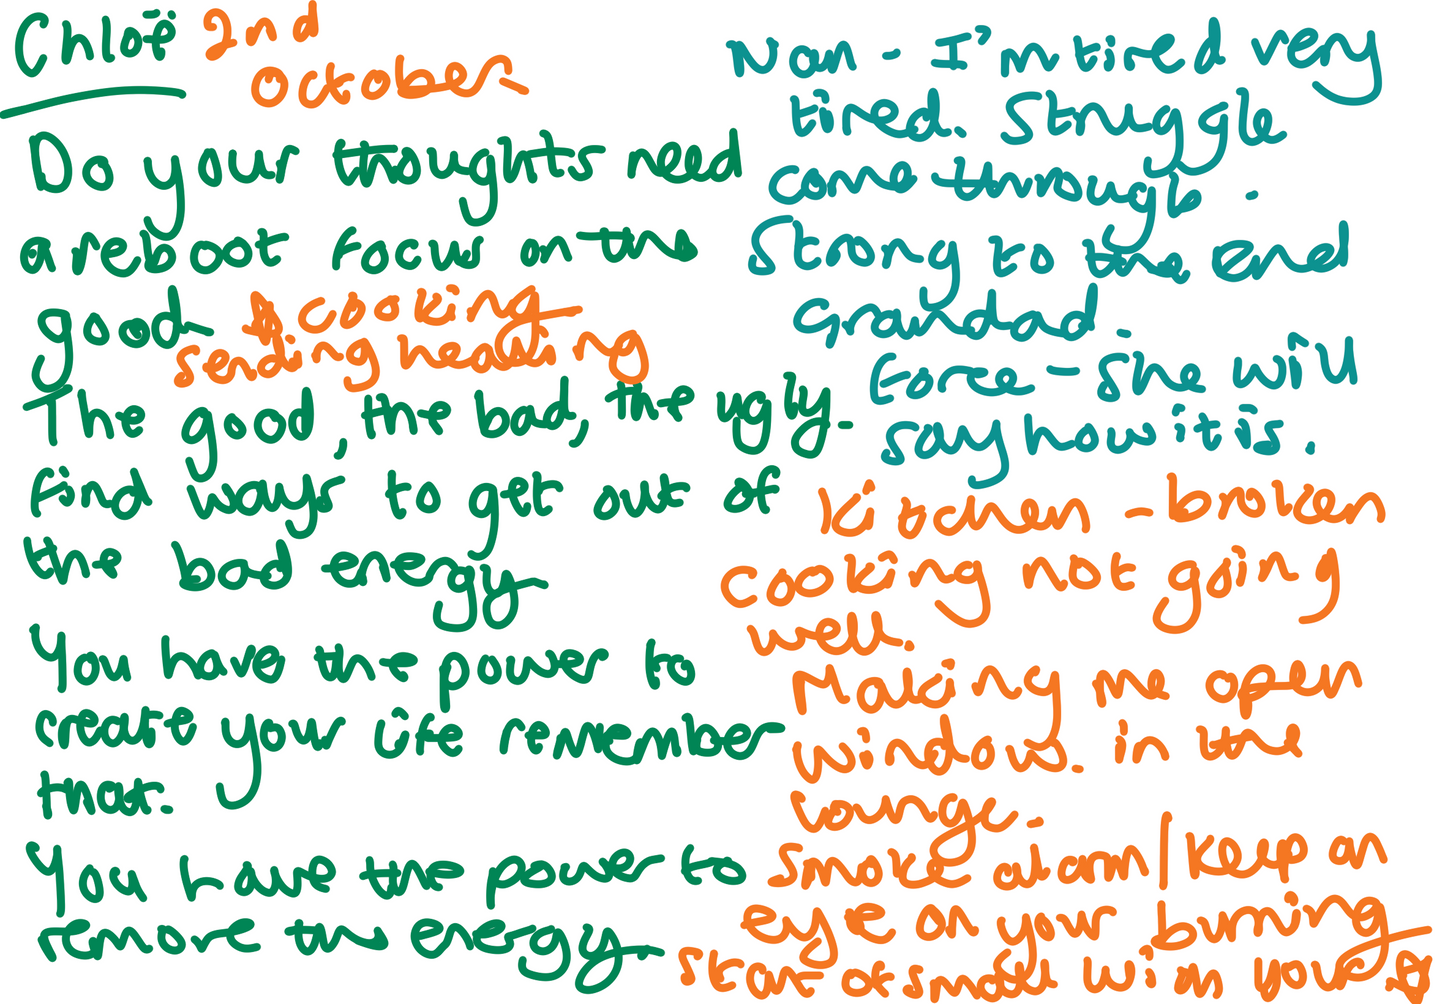 Chloë 2nd
October
Do your thoughts need
a reboot focus on the
good
cooking
sending healing
The good, the bad, the ugly.
find ways to get out of
the bad energy
You have the power to
create your life remember
that.
You have the power to
remove the energy
Nan - I'm tired very
tired. Struggle
come through.
Strong to the end
Grandad.
Force - She will
say how it is.
Kitchen - broken
cooking not going
well.
Making me open
window. in the
lounge.
Smoke alarm / keep an
eye on your burning
start of small with your